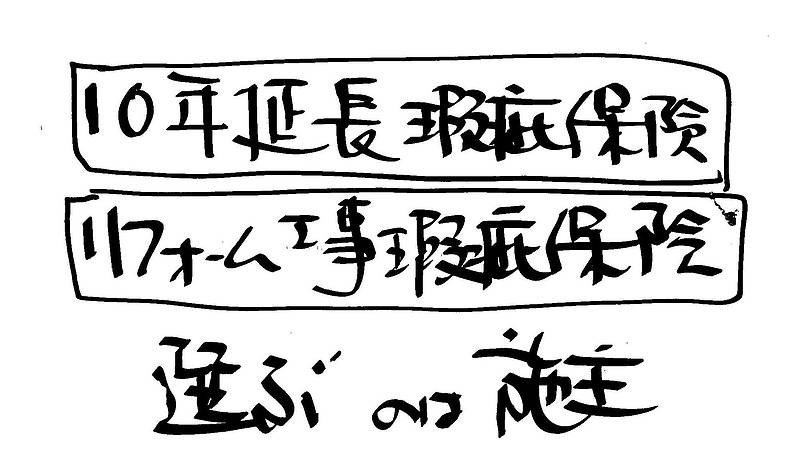 10年延長瑕疵保険
リフォーム工事瑕疵保険
選ぶのは施主